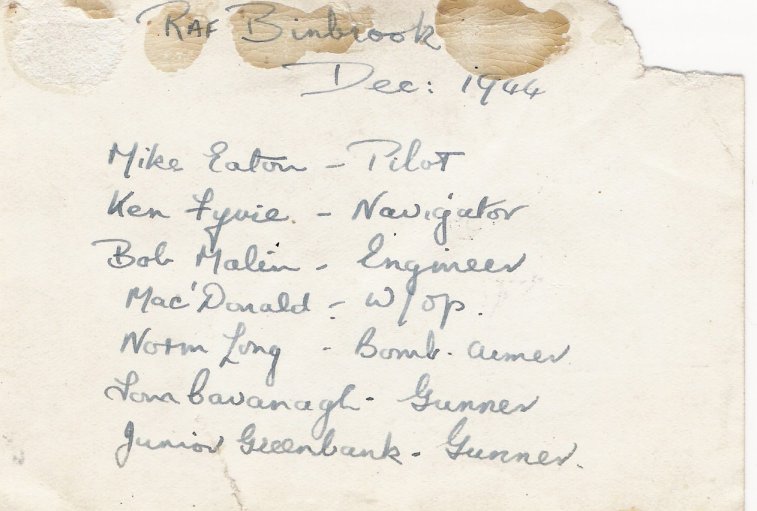 RAF Binbrook
Dec: 1944
Mike Eaton - Pilot
Ken Fyvie. - Navigator
Bob Malin - Engineer
Mac'Donald - W/op.
Norm Long - Bomb. aimer
Tom Cavanagh - Gunner
Junior Greenbank - Gunner.